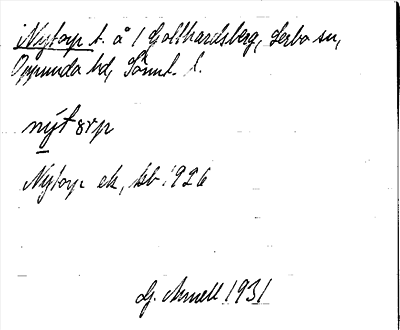 Nytorp t. å / Gotthardsberg, Lerbo sn,
Oppunda hd, Sörml. l.
nýtorp
Nytorp ek, kb 1926
G. Arnell 1931